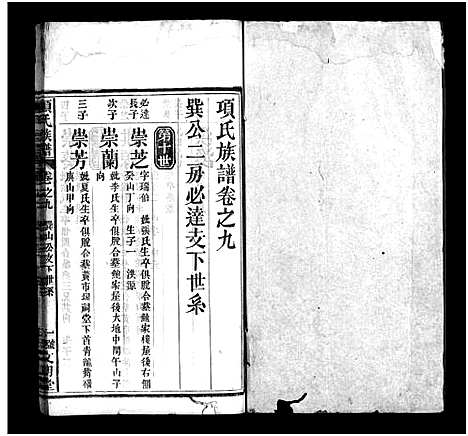 項氏族譜卷之九
巽公二房必達支下世系
第十世
必達長子
崇芝
字瑞伯 娶張氏生卒俱脫合葬
癸山丁向 生子一 洪源
次子
崇蘭
娶李氏生卒俱脫合葬魏家棧屋後大地中間午山子
向
三子
崇芳
娶夏氏生卒俱脫合葬黃市
山甲向
項氏族譜 卷之九 巽公支下世系 一